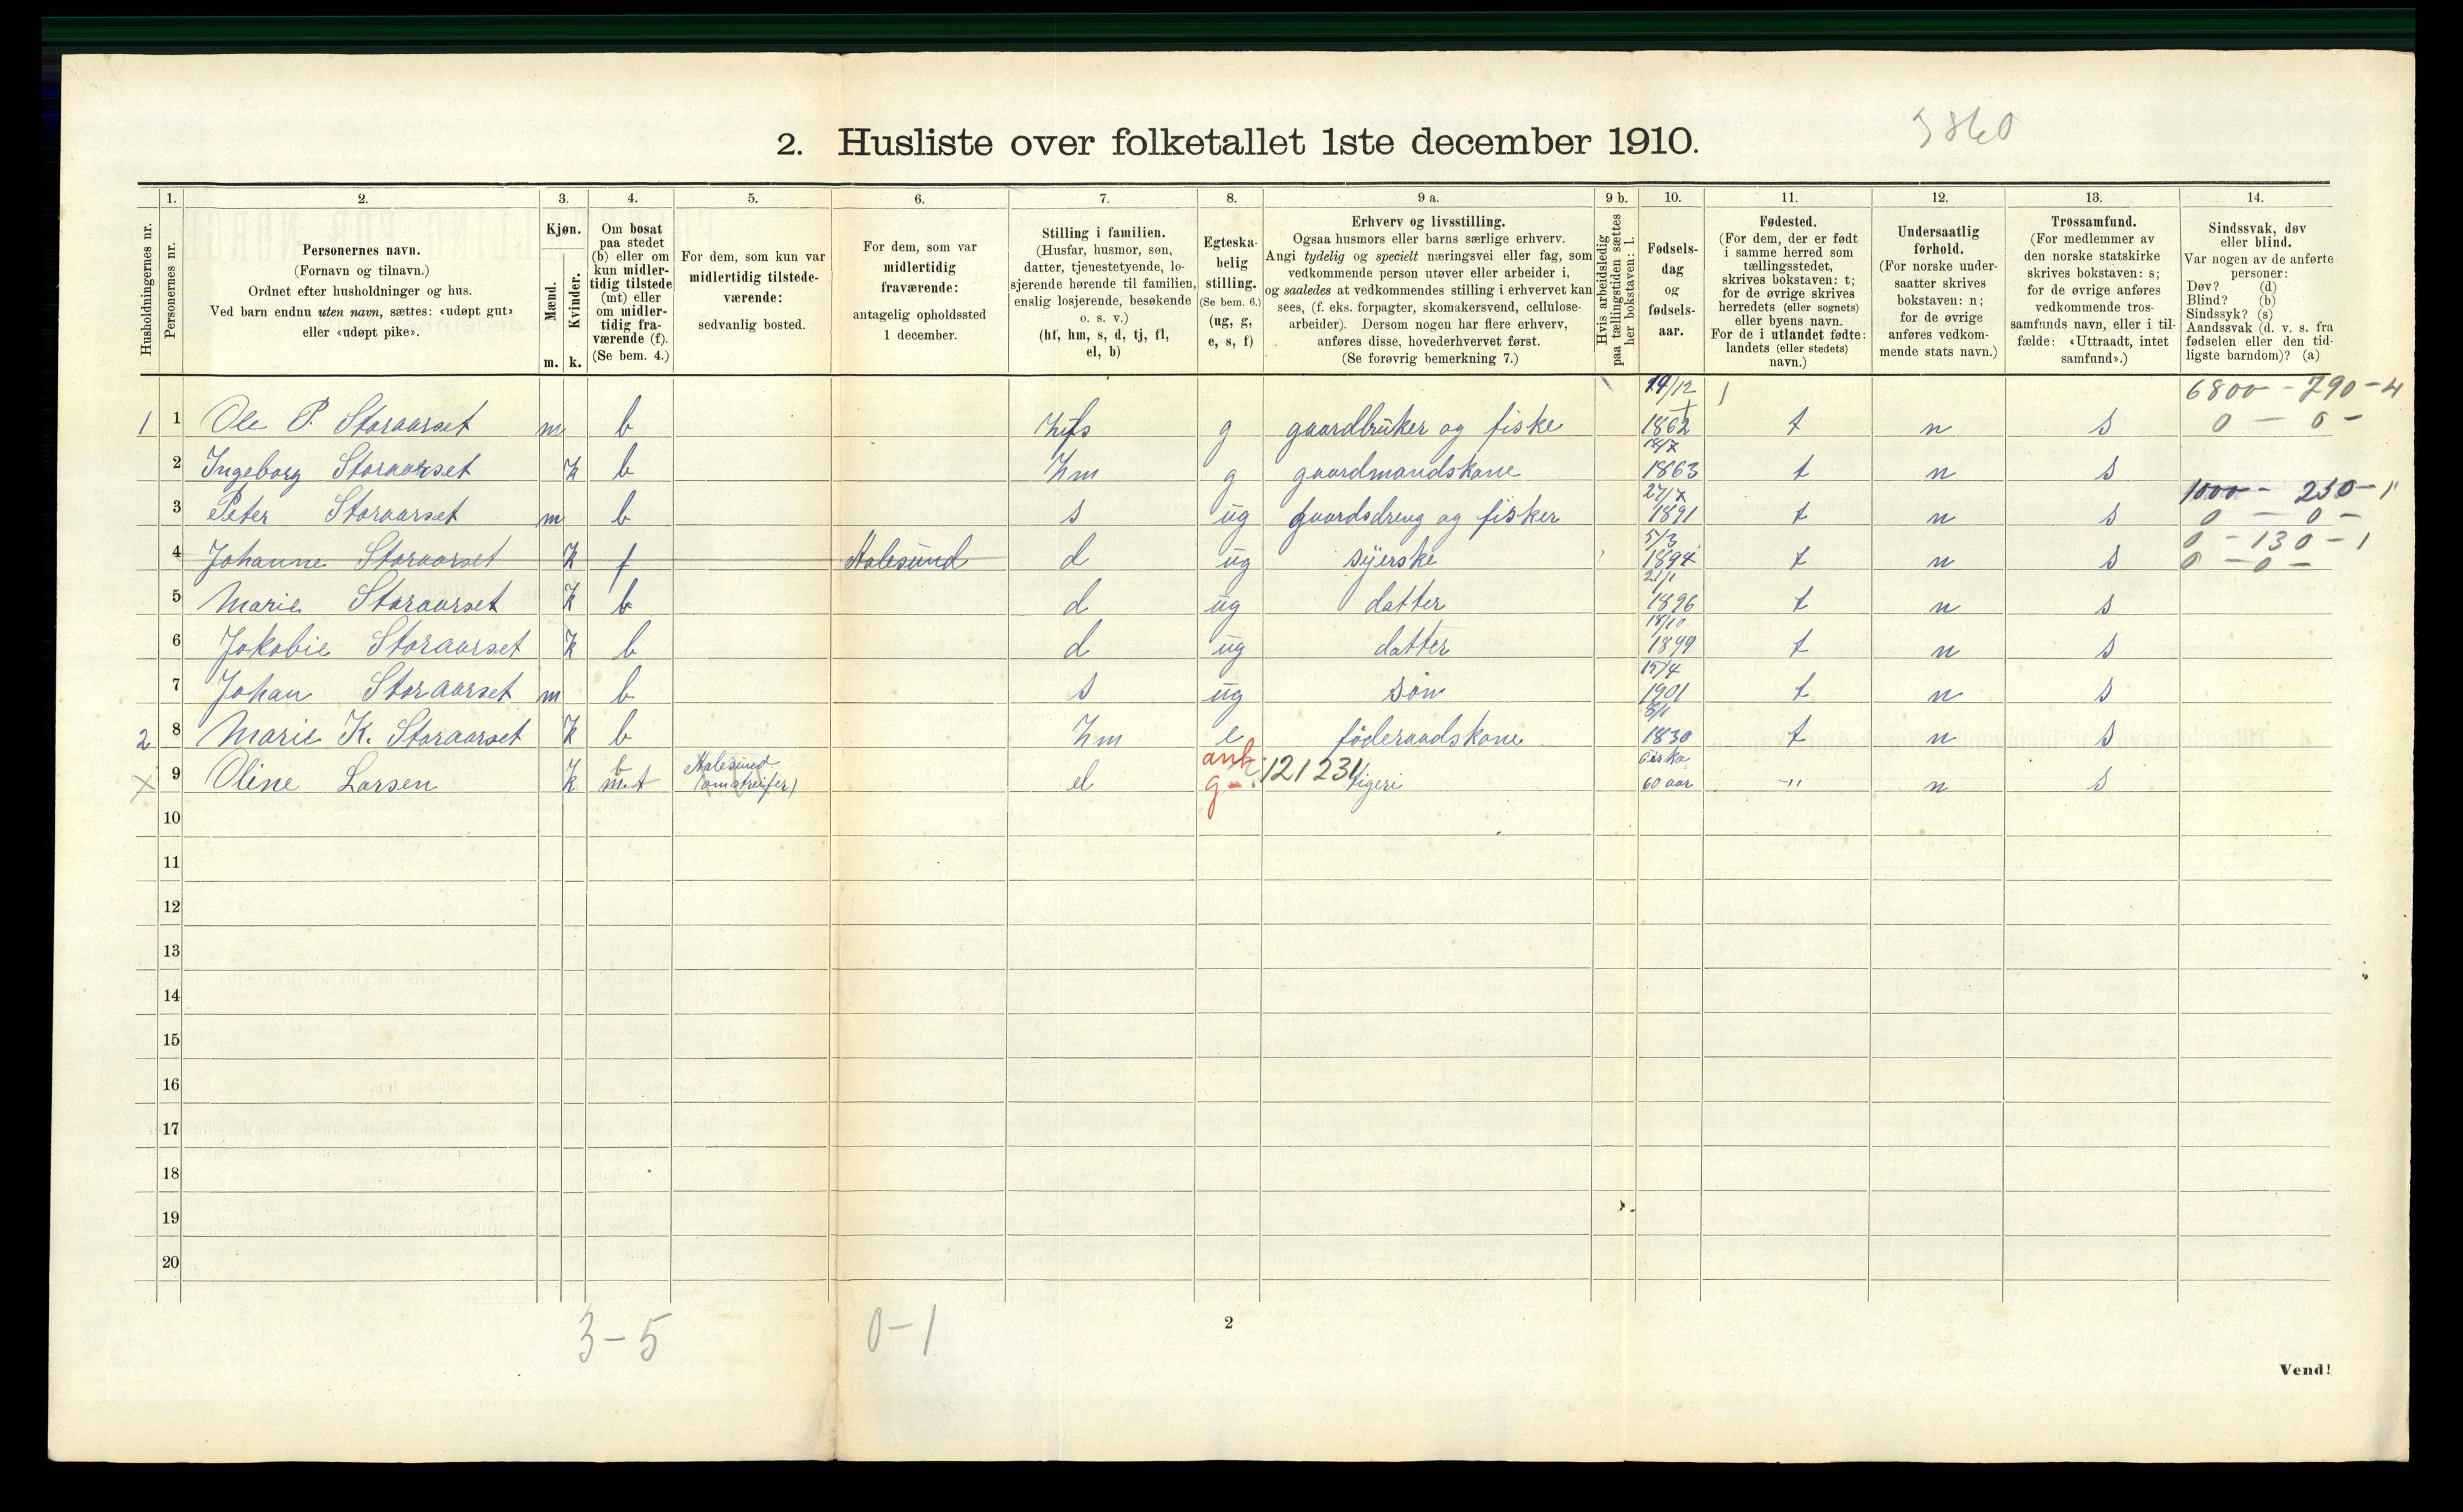 3860
2. Husliste over folketallet 1ste december 1910.
Husholdningernes nr.
1. Personernes nr.
2. Personernes navn.
(Fornavn og tilnavn.)
Ordnet efter husholdninger og hus.
Ved barn endnu uten navn, sættes: «udøpt gut»
eller «udøpt pike».
3. Kjøn.
Mænd. m.
Kvinder. k.
4. Om bosat
paa stedet
(b) eller om
kun midler-
tidig tilstede
(mt) eller
om midler-
tidig fra-
værende (f).
(Se bem. 4.)
5. For dem, som kun var
midlertidig tilstede-
værende:
sedvanlig bosted.
6. For dem, som var
midlertidig
fraværende:
antagelig opholdssted
1 december.
7. Stilling i familien.
(Husfar, husmor, søn,
datter, tjenestetyende, lo-
sjerende hørende til familien,
enslig losjerende, besøkende
o. s. v.)
(hf, hm, s, d, tj, fl,
el, b)
8. Egteska-
belig
stilling.
(Se bem. 6.)
(ug, g,
e, s, f)
9 a. Erhverv og livsstilling.
Ogsaa husmors eller barns særlige erhverv.
Angi tydelig og specielt næringsvei eller fag, som
vedkommende person utøver eller arbeider i,
og saaledes at vedkommendes stilling i erhvervet kan
sees, (f. eks. forpagter, skomakersvend, cellulose-
arbeider). Dersom nogen har flere erhverv,
anføres disse, hovederhvervet først.
(Se forøvrig bemerkning 7.)
9 b. Hvis arbeidsledig
paa tællingstiden sættes
her bokstaven: l.
10. Fødsels-
dag
og
fødsels-
aar.
11. Fødested.
(For dem, der er født
i samme herred som
tællingsstedet,
skrives bokstaven: t;
for de øvrige skrives
herredets (eller sognets)
eller byens navn.
For de i utlandet fødte:
landets (eller stedets)
navn.)
12. Undersaatlig
forhold.
(For norske under-
saatter skrives
bokstaven: n;
for de øvrige
anføres vedkom-
mende stats navn.)
13. Trossamfund.
(For medlemmer av
den norske statskirke
skrives bokstaven: s;
for de øvrige anføres
vedkommende tros-
samfunds navn, eller i til-
fælde: «Uttraadt, intet
samfund».)
14. Sindssvak, døv
eller blind.
Var nogen av de anførte
personer:
Døv? (d)
Blind? (b)
Sindssyk? (s)
Aandssvak (d. v. s. fra
fødselen eller den tid-
ligste barndom)? (a)
14/12 6800 - 290 - 4
1 1 Ole P. Storaarset m b g gaardbruker og fiske 1862 t n s 0 - 0 -
2 Ingeborg Storaarset k b hm g gaardmandskone 18/7 1863 t n s
3 Peter Storaarset m b s ug gaardsdreng og fisker 27/7 1891 t n s 1000 - 230 - 1
0 - 0 -
4 Johanne Storaarset k f Aalesund d ug syerske 5/3 1894 t n s 0 - 130 - 1
0 - 0 -
5 Marie Storaarset k b d ug datter 21/1 1896 t n s
6 Jakobie Storaarset k b d ug datter 18/10 1899 t n s
7 Johan Storaarset m b s ug søn 15/4 1901 t n s
2 8 Marie K. Storaarset k b hm e föderaadskone 8/1 1830 t n s
x 9 Oline Larsen k b mt Aalesund (omstreifer) el ant. g-. 121231 tigeri cirka 60 aar -" n s
10
11
12
13
14
15
16
17
18
19
20
3-5 0-1
2
Vend!